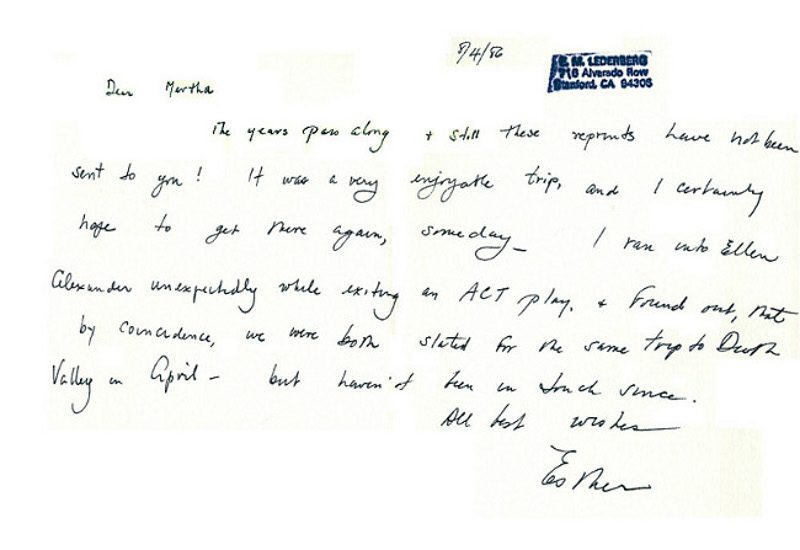 8/4/86
E. M. LEDERBERG
716 Alvarado Row
Stanford, CA 94305
Dear Martha
The years pass along + still these reprints have not been
sent to you! It was a very enjoyable trip, and I certainly
hope to get there again, someday_ I ran into Ellen
Alexander unexpectedly while exiting an ACT play, + found out, that
by coincidence, we were both slated for the same trip to Death
Valley in April – but haven't been in touch since.
All best wishes
Esther